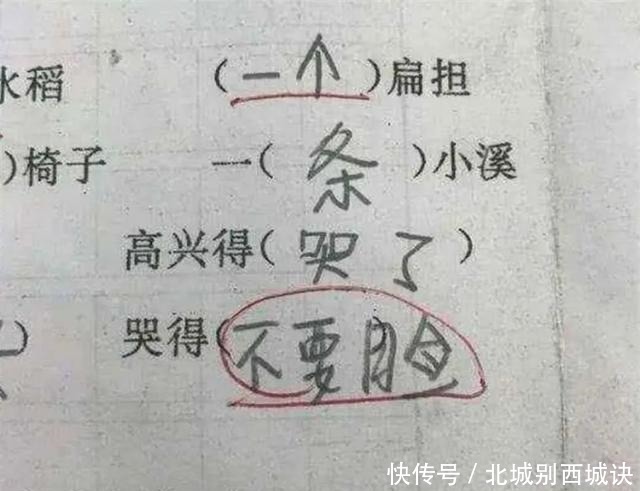 水稻 (一个)扁担
)椅子 一(条)小溪
高兴得(哭了)
) 哭得(不要脸
快传号/北城别西城诀